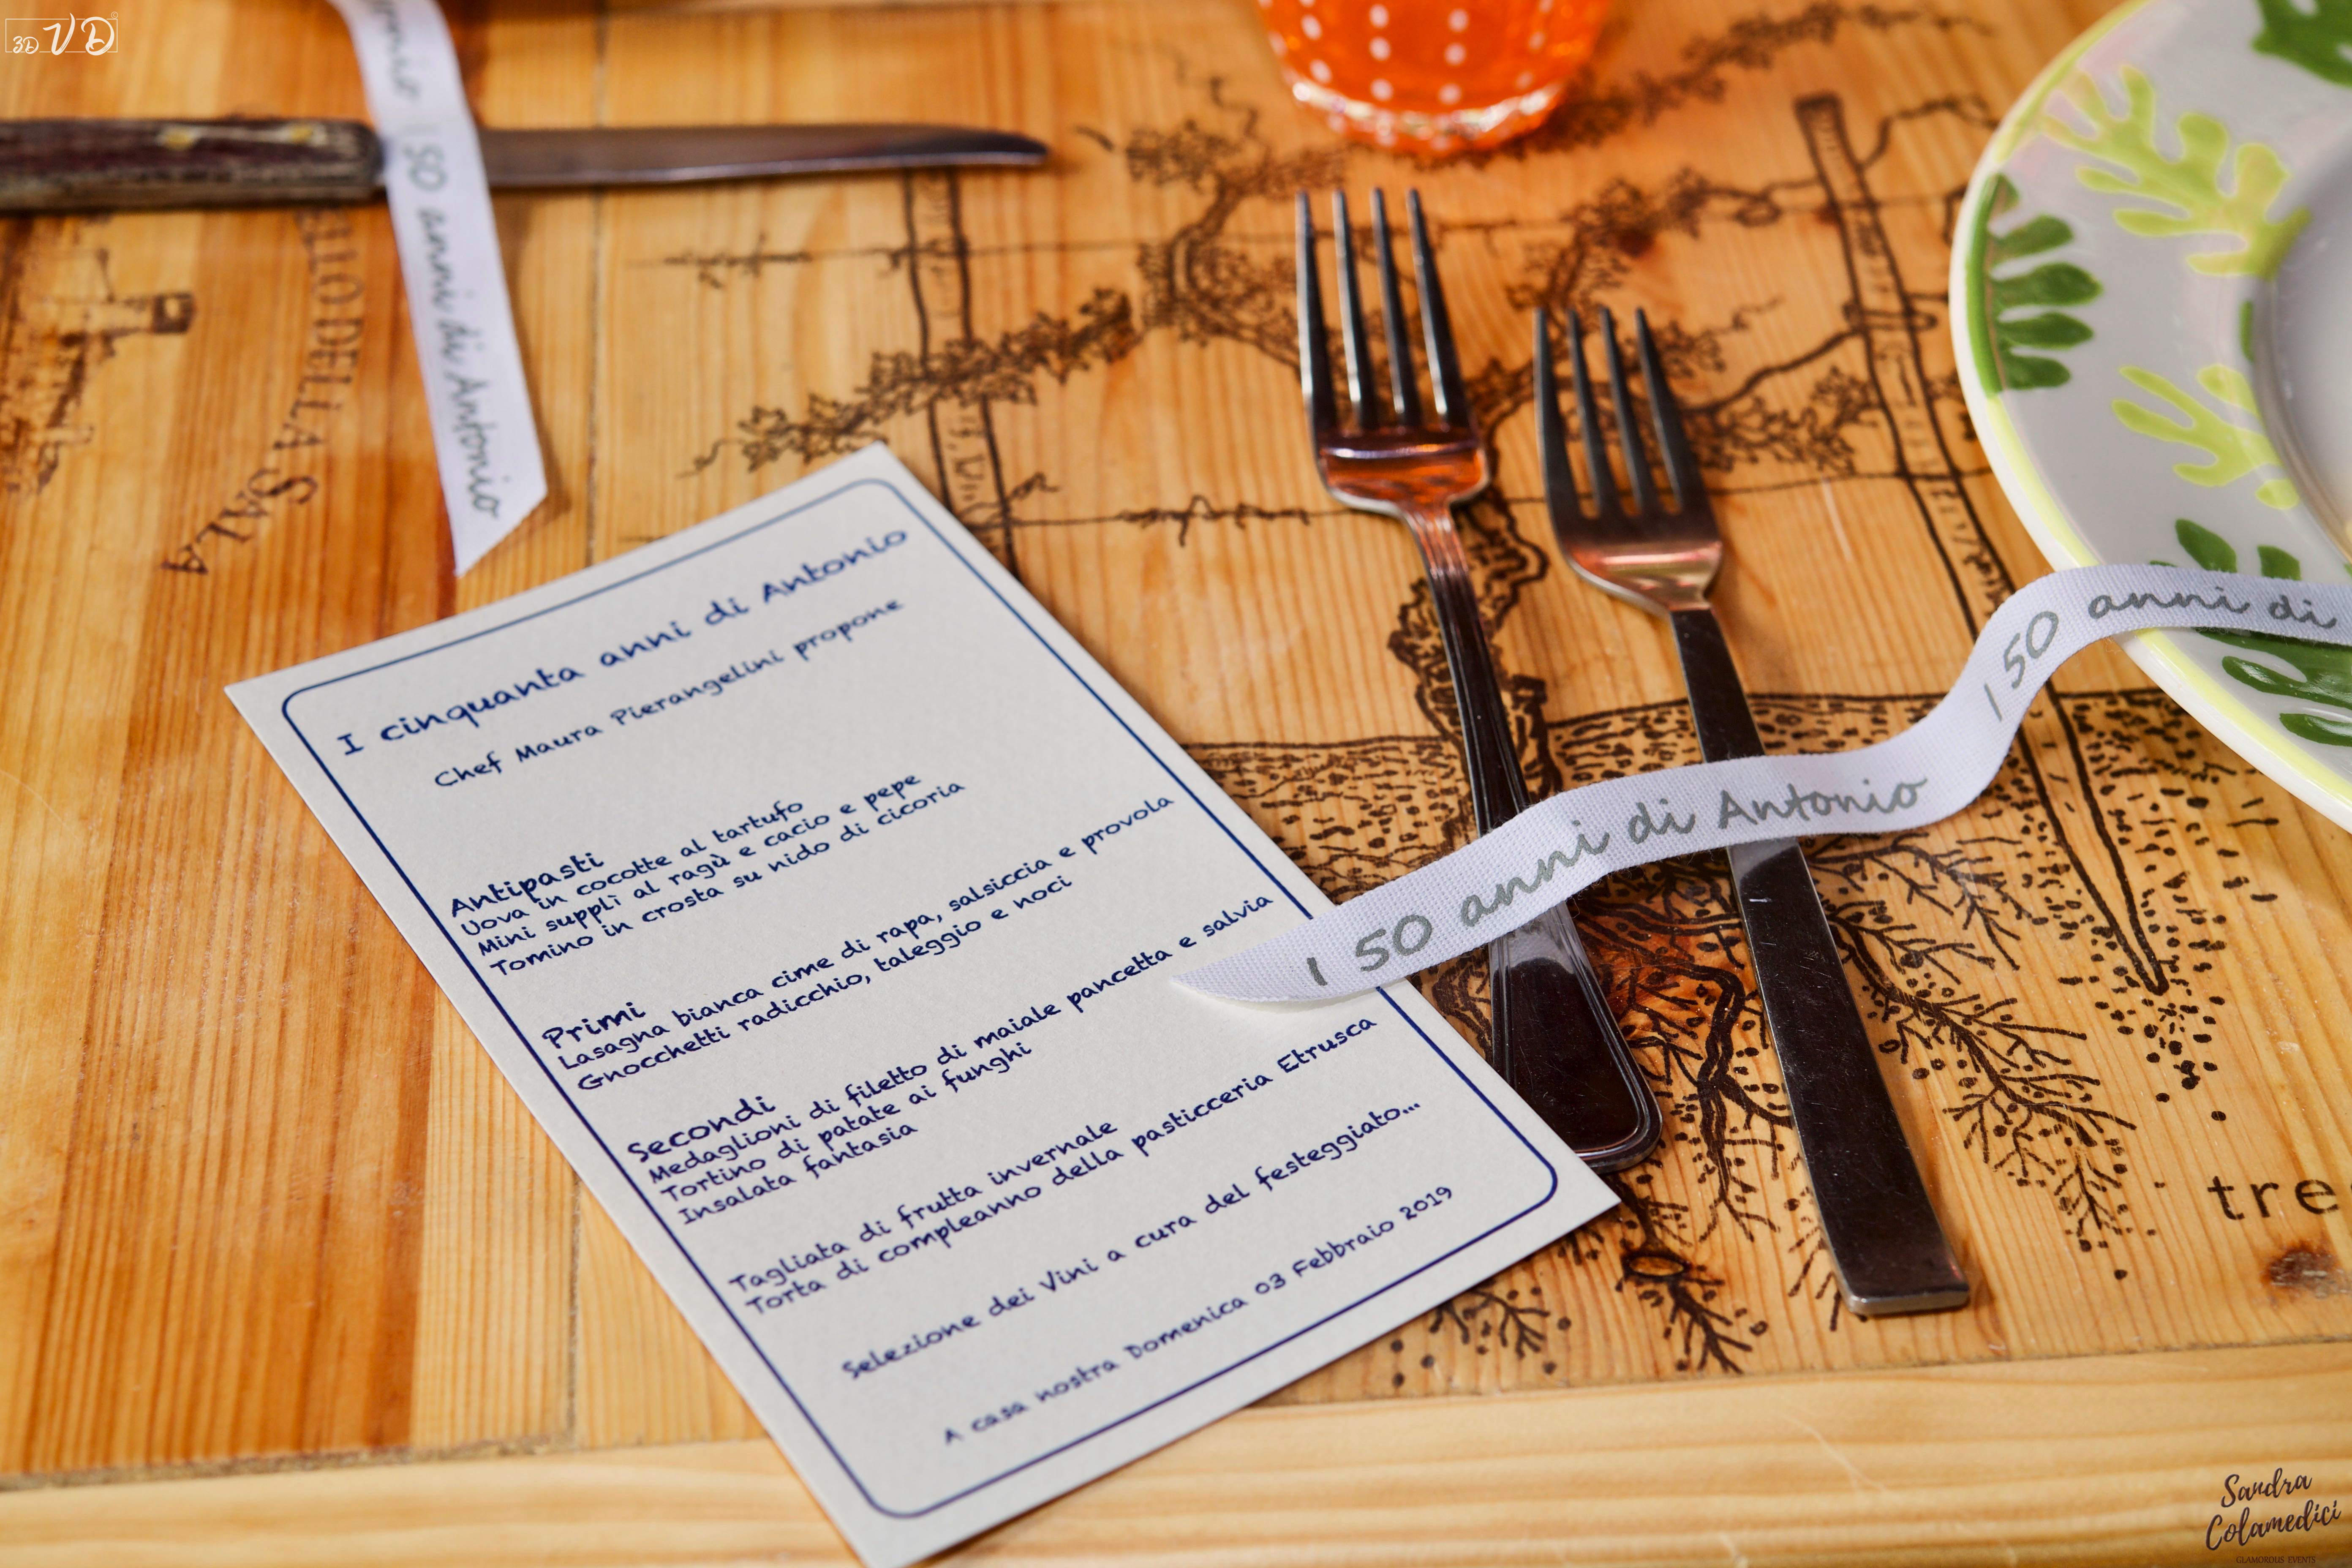 3D VD
onio
150 anni di Antonio
ELLO DELLA SALA
I cinquanta anni di Antonio
Chef Maura Pierangelini propone
Antipasti
Uova in cocotte al tartufo
Mini supplì al ragù e cacio e pepe
Tomino in crosta su nido di cicoria
Primi
Lasagna bianca cime di rapa, salsiccia e provola
Gnocchetti radicchio, taleggio e noci
Secondi
Medaglioni di filetto di maiale pancetta e salvia
Tortino di patate ai funghi
Insalata fantasia
Tagliata di frutta invernale
Torta di compleanno della pasticceria Etrusca
Selezione dei Vini a cura del festeggiato...
A casa nostra Domenica 03 Febbraio 2019
I 50 anni di Antonio
I 50 anni di
tre
Sandra
Colamedici
GLAMOROUS EVENTS